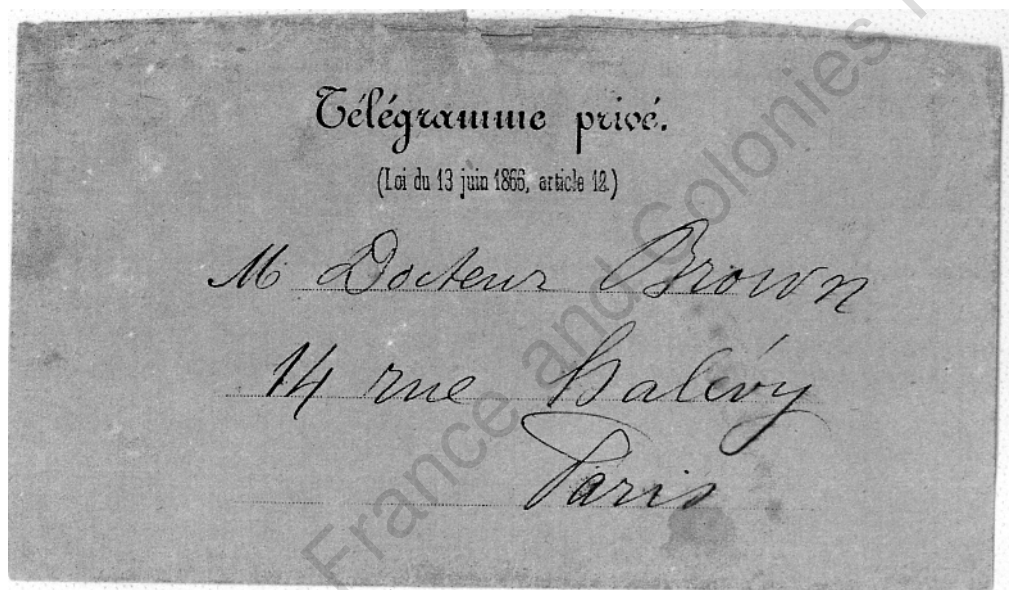 Télégramme privé.
(Loi du 13 juin 1866, article 12.)
M Docteur Brown
14 rue Halévy
Paris
France and Colonies